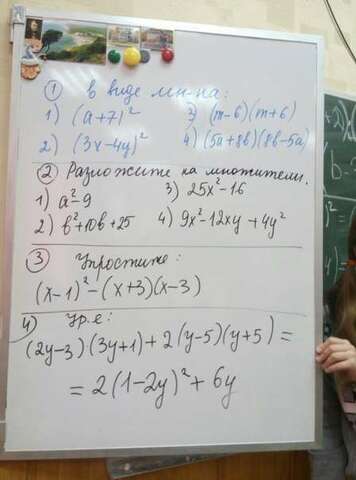 ① в виде мн-на:
1) (a+7)² 3) (m-6)(m+6)
2) (3x-4y)² 4) (5a+8b)(8b-5a)
② Разложите на множители.
1) a²-9 3) 25x²-16
2) b²+10b+25 4) 9x²-12xy+4y²
③ Упростите:
(x-1)²-(x+3)(x-3)
④ Ур-е:
(2y-3)(3y+1)+2(y-5)(y+5)=
=2(1-2y)²+6y